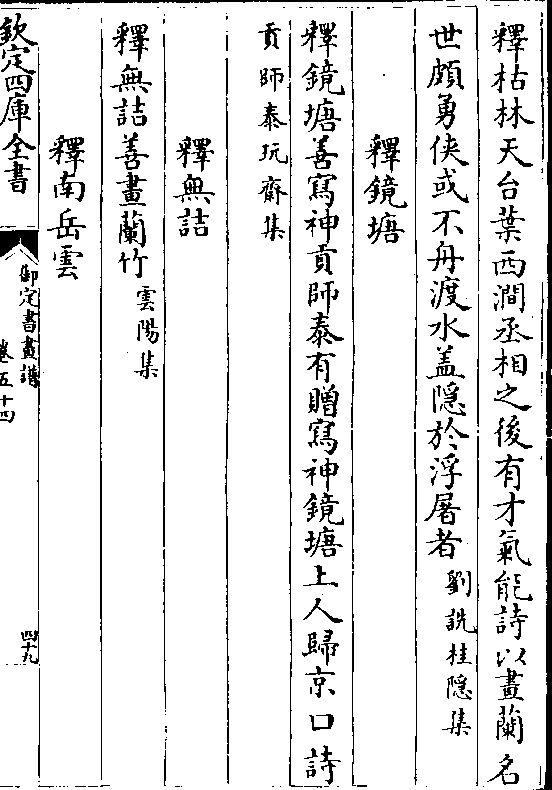 釋枯林天台葉西澗丞相之後有才氣能詩以畫蘭名
世頗勇俠或不舟渡水盖隠於浮屠者劉詵桂隠集
釋鏡塘
釋鏡塘善寫神貢師泰有贈寫神鏡塘上人歸京口詩
貢師泰玩齋集
釋無詰
釋無詰善畫蘭竹雲陽集
釋南岳雲
欽定四庫全書
御定書畫譜
卷五十四
四十九